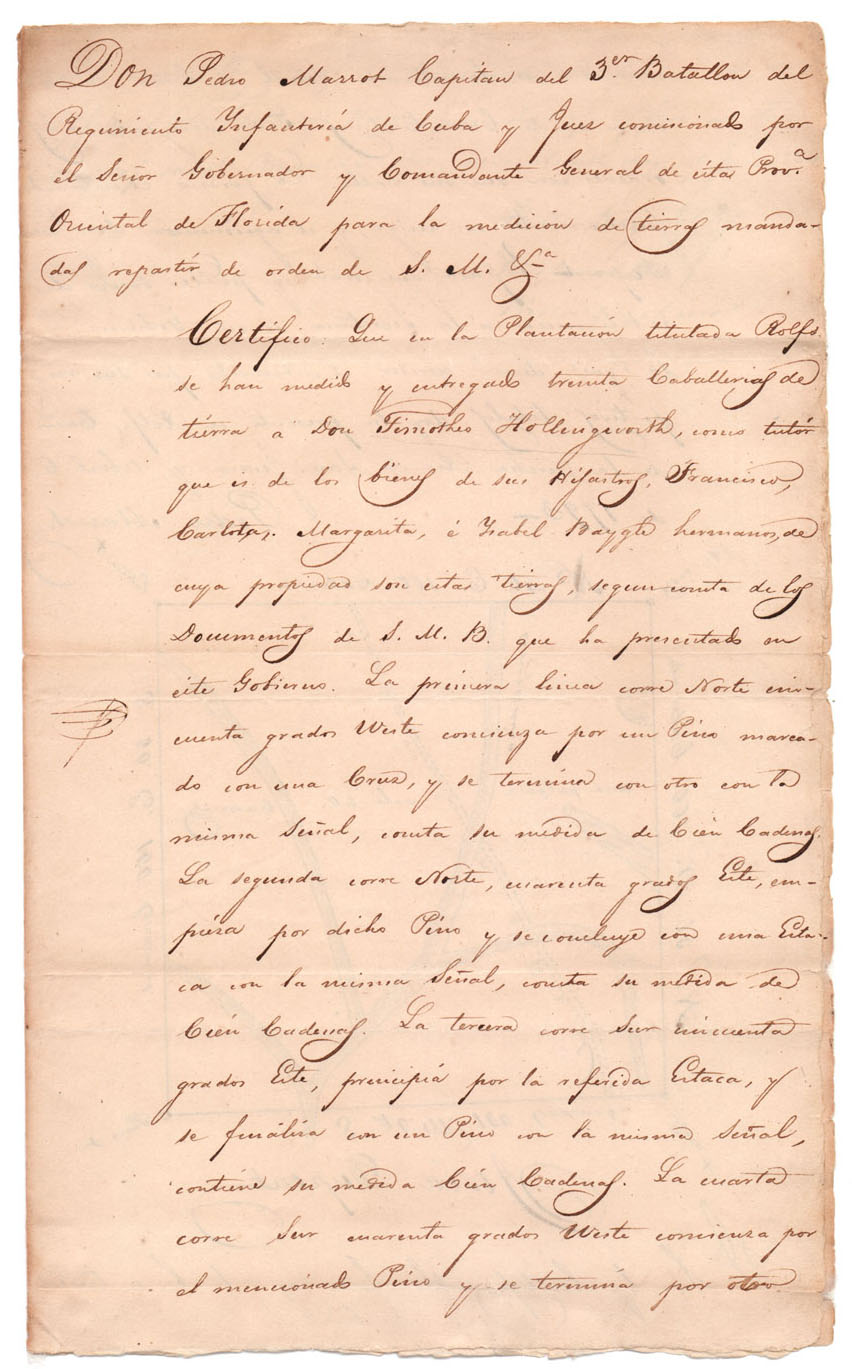 Don Pedro Marrot Capitan del 3.er Batallon del
Regimiento Ynfantería de Cuba y Juez comisionado por
el Señor Gobernador y Comandante General de ésta Prov.a
Oriental de Florida para la medición de tierras manda-
das repartir de orden de S. M. &a
Certifico: Que en la Plantación titulada Rolfs.
se han medido y entregado treinta Caballerias de
tiérra a Don Timotheo Hollingsworth, como tutór
que es de los biénes de sus Hijastros, Francisco,
Carlota, Margarita, é Ysabel Baygle hermanos, de
cuya propiedad son estas tiérras, segun consta de los
Documentos de S. M. B. que ha presentado en
este Gobierno. La primera linea corre Norte cin-
cuenta grados Weste comienza por un Pino marca-
do con una Cruz, y se termina con otro con la
misma Señal, consta su medida de Cién Cadenas.
La segunda corre Norte, cuarenta grados Este, em-
piéza por dicho Pino y se concluye con una Esta-
ca con la misma Señal, consta su medida de
Cién Cadenas. La tercera corre Sur cincuenta
grados Este, principia por la referida Estaca, y
se finaliza con un Pino con la misma Señal,
contiéne su medida Cién Cadenas. La cuarta
corre Sur cuarenta grados Weste comienza por
el mencionado Pino y se termina por otro